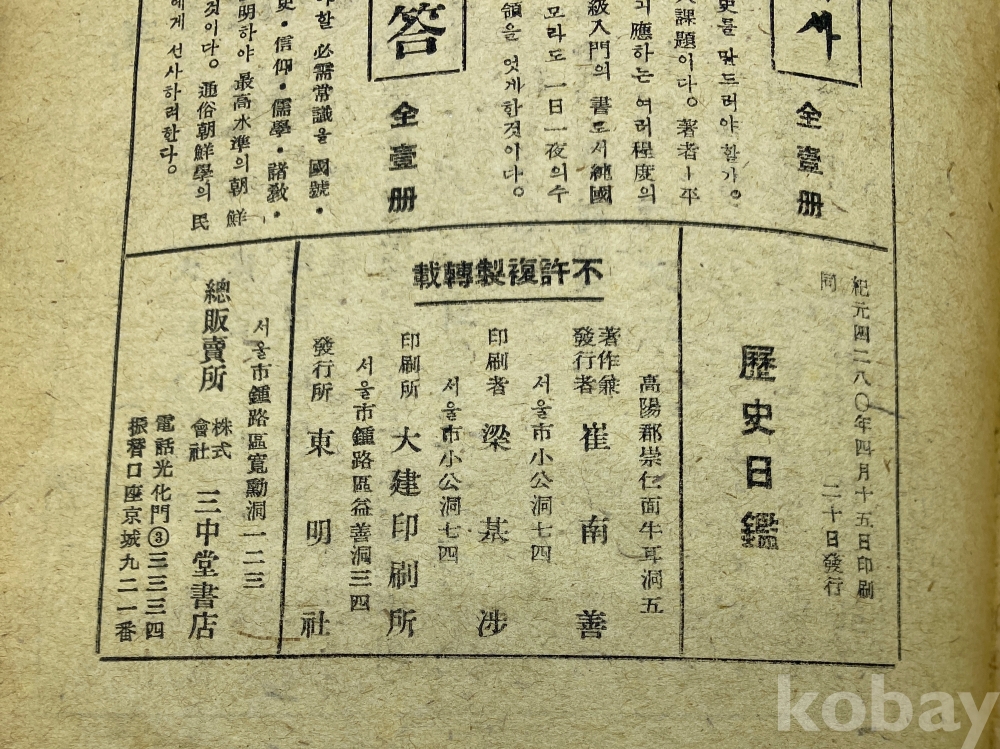 사
全壹册
史를 맡드러야할가。
課題이다。著者ㅣ平
應하는 여러程度의
級入門의 書로서純國
모라도 一日一夜의수
領을 엇게한것이다。
答
全壹册
야할 必需常識을 國號·
史·信仰·儒學·諸敎·
明하야 最高水準의朝鮮
것이다。通俗朝鮮學의 民
에게 선사하려한다。
紀元四二八〇年四月十五日印刷
同 二十日發行
歷史日鑑
不許複製轉載
高陽郡崇仁面牛耳洞五
著作兼
發行者 崔南善
서울市小公洞七四
印刷者 梁基涉
서울市小公洞七四
印刷所 大建印刷所
서울市鍾路區益善洞三四
發行所 東明社
서울市鍾路區寬勳洞一二三
總販賣所
株式
會社 三中堂書店
電話光化門③三三三四
振替口座京城九二一番
kobay